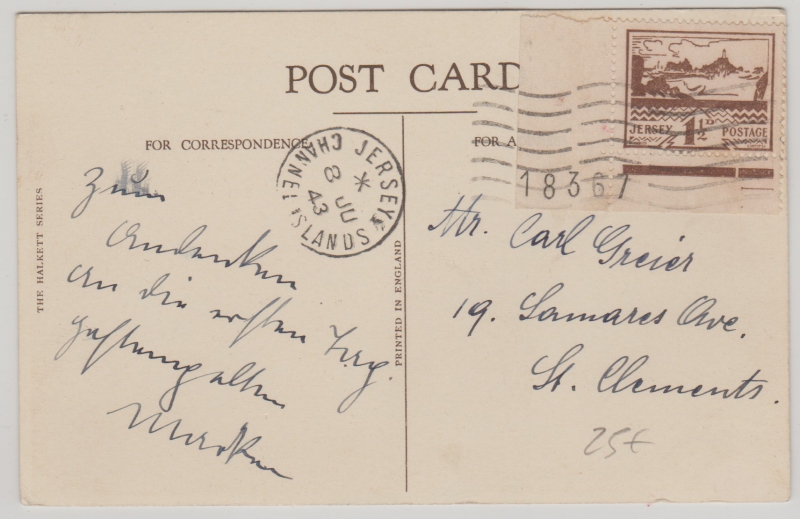 POST CARD
FOR CORRESPONDENCE
FOR A
THE HALKETT SERIES
PRINTED IN ENGLAND
JERSEY
CHANNEL ISLANDS
8 JU
43
JERSEY 1½D POSTAGE
18367
Zum
Andenken
an die ersten
Marken
Mr. Carl Greier
19, Samares Ave,
St. Clements.